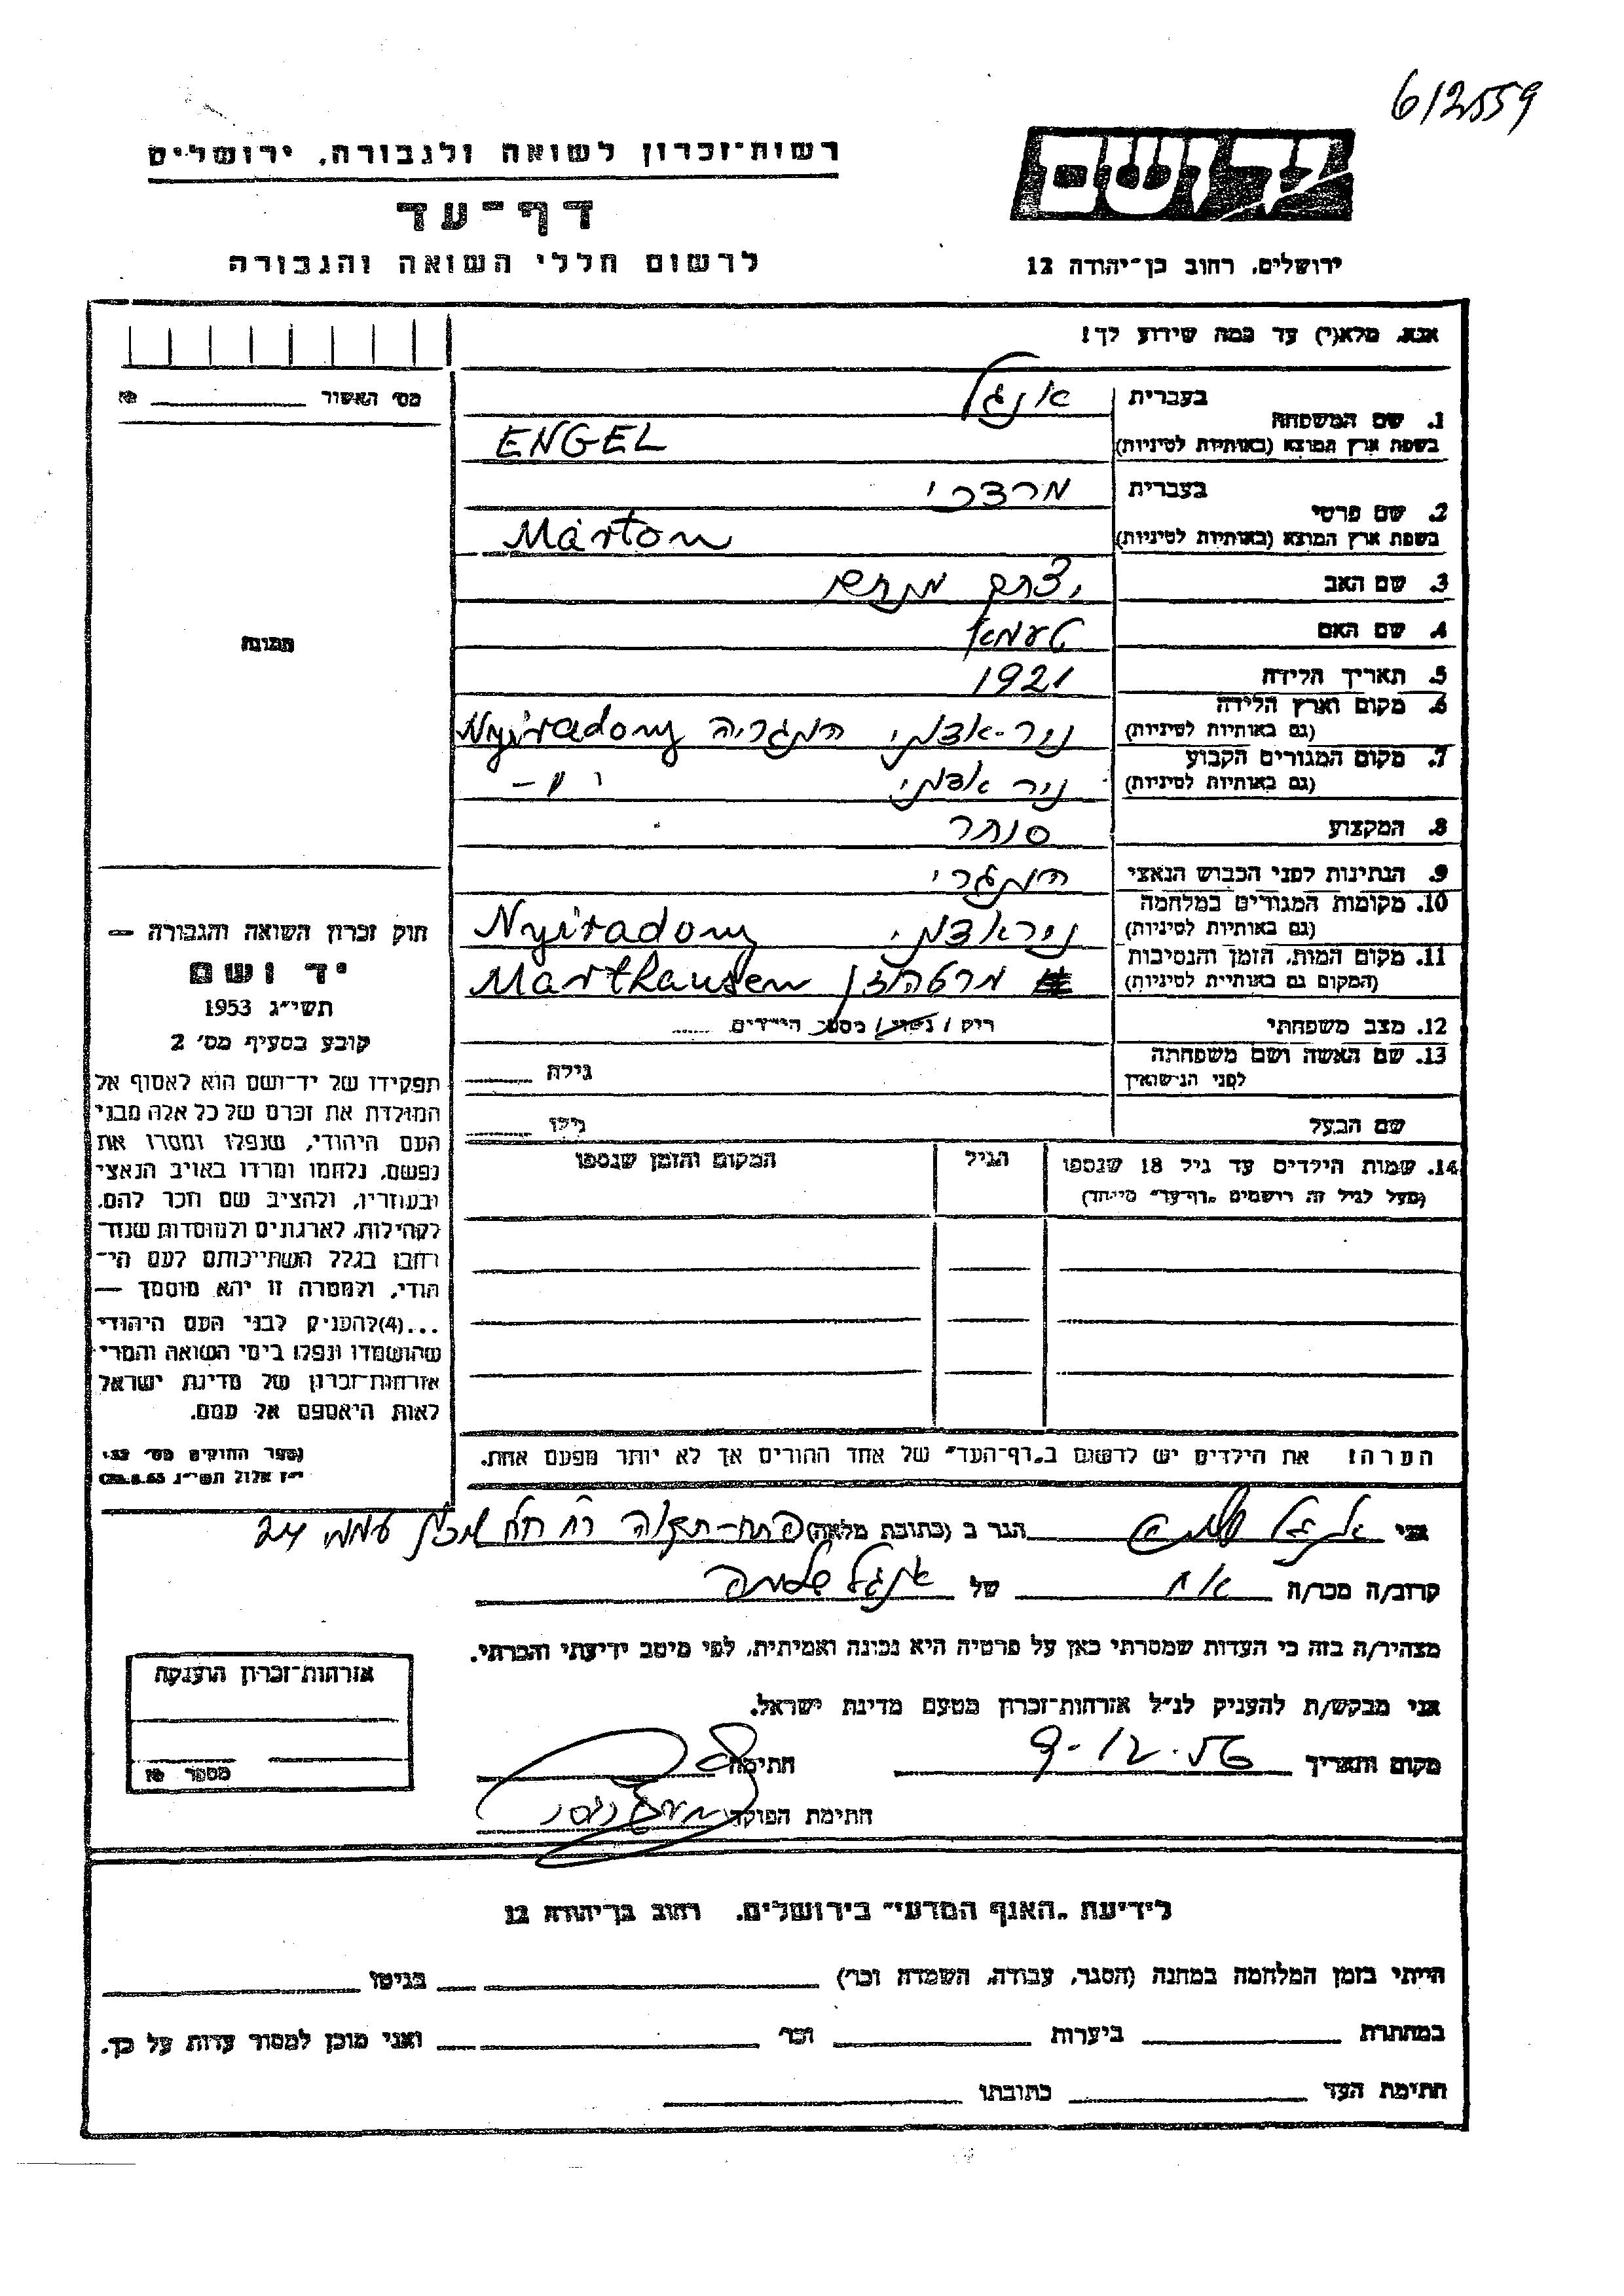 612559
רשות־זכרון לשואה ולגבורה, ירושלים
יד ושם
דף־עד
לרשום חללי השואה והגבורה
ירושלים, רחוב בן־יהודה 12
אנא, מלא(י) עד כמה שידוע לך!
מס׳ האשור
1. שם המשפחה
בעברית אנגל
בשפת ארץ המוצא (באותיות לטיניות) ENGEL
2. שם פרטי
בעברית מרדכי
בשפת ארץ המוצא (באותיות לטיניות) Márton
3. שם האב יצחק מנחם
4. שם האם
5. תאריך הלידה 1921
6. מקום וארץ הלידה
(גם באותיות לטיניות) ניר-אדוני הונגריה Nyiradony
7. מקום המגורים הקבוע
(גם באותיות לטיניות) ניר אדוני
8. המקצוע סוחר
9. הנתינות לפני הכבוש הנאצי הונגרי
10. מקומות המגורים במלחמה
(גם באותיות לטיניות) ניראדוני Nyiradony
11. מקום המות, הזמן והנסיבות
(המקום גם באותיות לטיניות) מרטהוזן Marthausen
12. מצב משפחתי רווק / נשוי / מספר הילדים
13. שם האשה ושם משפחתה
לפני הנישואין גילה
שם הבעל גילו
14. שמות הילדים עד גיל 18 שנספו הגיל המקום והזמן שנספו
(מעל לגיל זה רושמים „דף־עד״ מיוחד)
הערה! את הילדים יש לרשום ב„דף־העד״ של אחד ההורים אך לא יותר מפעם אחת.
תמונה
חוק זכרון השואה והגבורה —
יד ושם
תשי״ג 1953
קובע בסעיף מס׳ 2
תפקידו של יד־ושם הוא לאסוף אל
המולדת את זכרם של כל אלה מבני
העם היהודי, שנפלו ומסרו את
נפשם, נלחמו ומרדו באויב הנאצי
ובעוזריו, ולהציב שם וזכר להם,
לקהילות, לארגונים ולמוסדות שנח־
רבו בגלל השתייכותם לעם הי־
הודי, ולמטרה זו יהא מוסמך —
...(4)להעניק לבני העם היהודי
שהושמדו ונפלו בימי השואה והמרי
אזרחות־זכרון של מדינת ישראל
לאות היאספם אל עמם.
(ספר החוקים מס׳ 132,
י״ז אלול תשי״ג 28.8.53)
אני אנגל שלמה הגר ב (כתובת מלאה) פתח-תקוה רח 24
קרוב/ה מכר/ה אח של אנגל שלמה
מצהיר/ה בזה כי העדות שמסרתי כאן על פרטיה היא נכונה ואמיתית, לפי מיטב ידיעתי והכרתי.
אני מבקש/ת להעניק לנ״ל אזרחות־זכרון מטעם מדינת ישראל.
מקום ותאריך 9-12.56 חתימה
חתימת הפוקד
אזרחות־זכרון הוענקה
מספר
לידיעת „האגף המדעי״ בירושלים, רחוב בן־יהודה 12
הייתי בזמן המלחמה במחנה (הסגר, עבודה, השמדה וכו׳) בגיטו
במחתרת ביערות וכו׳ ואני מוכן למסור עדות על כך.
חתימת העד כתובתו